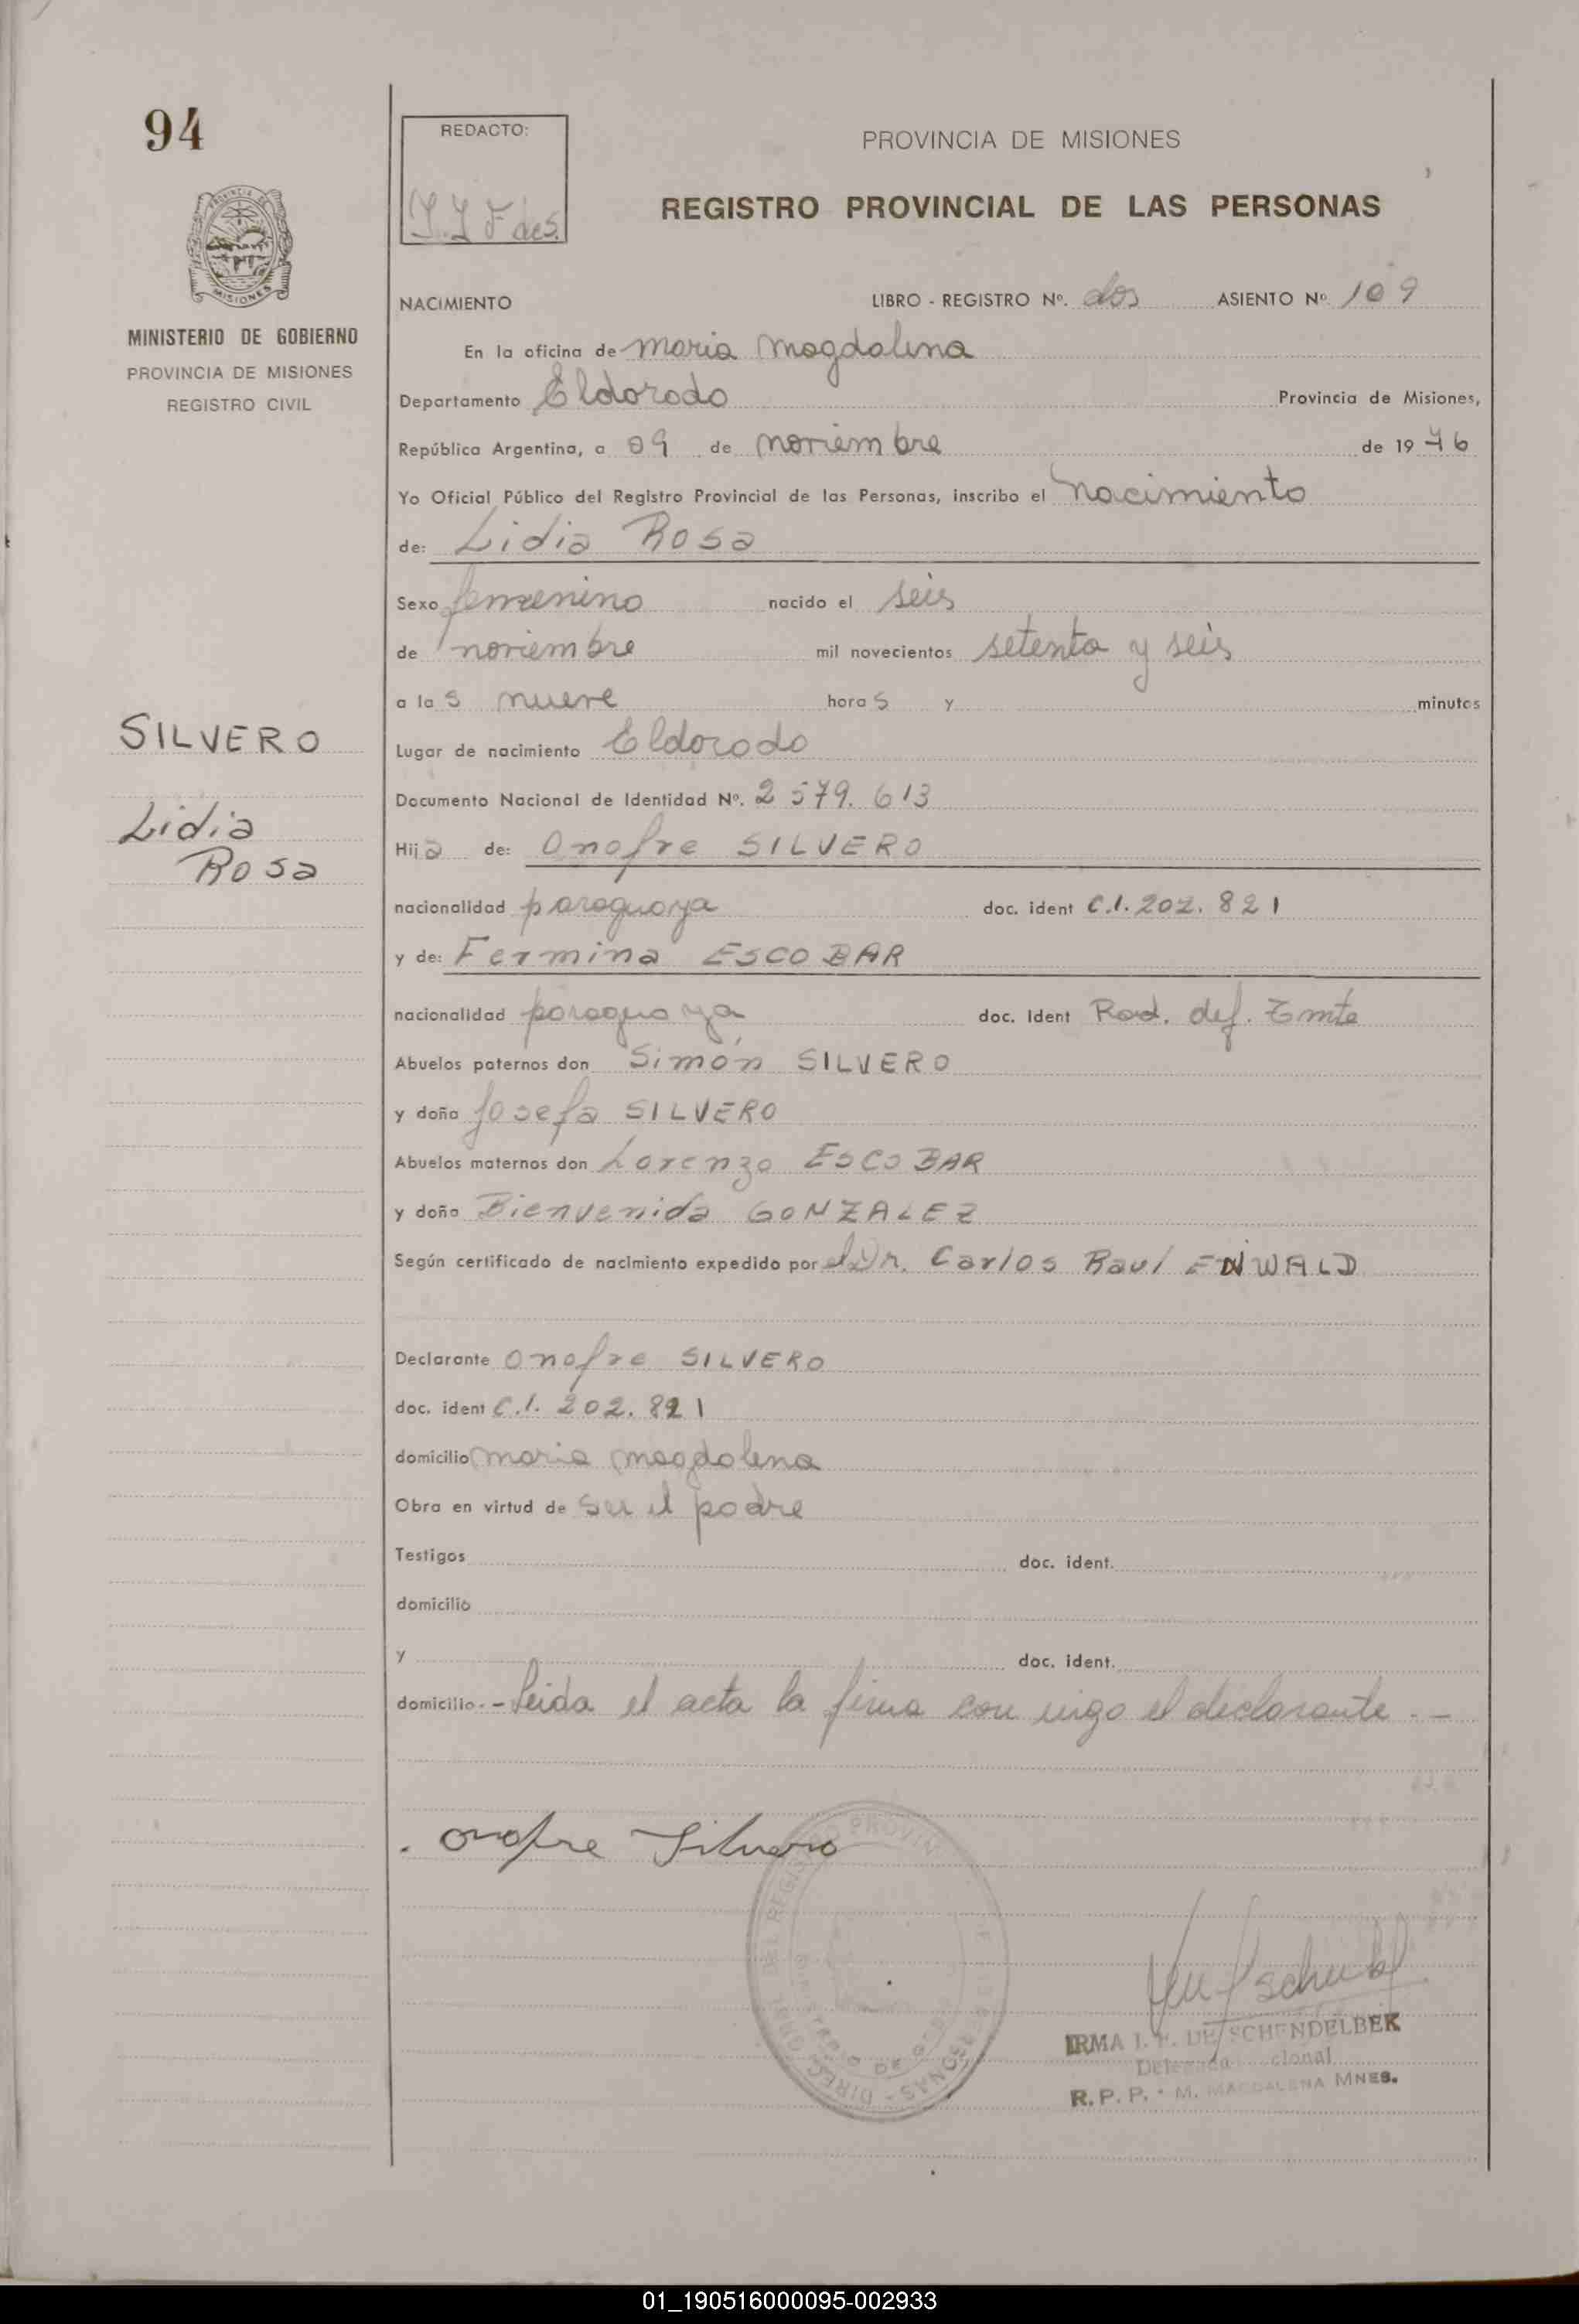 94
REDACTO:
PROVINCIA DE MISIONES
REGISTRO PROVINCIAL DE LAS PERSONAS
MISIONES
MINISTERIO DE GOBIERNO
PROVINCIA DE MISIONES
REGISTRO CIVIL
NACIMIENTO LIBRO - REGISTRO Nº. dos ASIENTO Nº. 109
En la oficina de maria magdalena
Departamento Eldorado Provincia de Misiones,
República Argentina, a 09 de noviembre de 1976
Yo Oficial Público del Registro Provincial de las Personas, inscribo el nacimiento
de: Lidia Rosa
Sexo femenino nacido el seis
de noviembre mil novecientos setenta y seis
a las nueve horas y minutos
SILVERO
Lugar de nacimiento Eldorado
Documento Nacional de Identidad Nº. 2 579. 613
Lidia
Rosa
Hija de: Onofre SILVERO
nacionalidad paraguaya doc. ident C.I. 202. 821
y de: Fermina ESCOBAR
nacionalidad paraguaya doc. Ident Rad. def. Tmte
Abuelos paternos don Simón SILVERO
y doña Josefa SILVERO
Abuelos maternos don Lorenzo ESCOBAR
y doña Bienvenida GONZALEZ
Según certificado de nacimiento expedido por el Dr. Carlos Raul ENWALD
Declarante Onofre SILVERO
doc. ident C.I. 202. 821
domicilio maria magdalena
Obra en virtud de ser el padre
Testigos doc. ident.
domicilio
y doc. ident.
domicilio.- Leida el acta la firma con migo el declarante.-
Onofre Silvero
IRMA I. F. DE SCHENDELBEK
R. P. P. - M. MAGDALENA MNES.
01_190516000095-002933